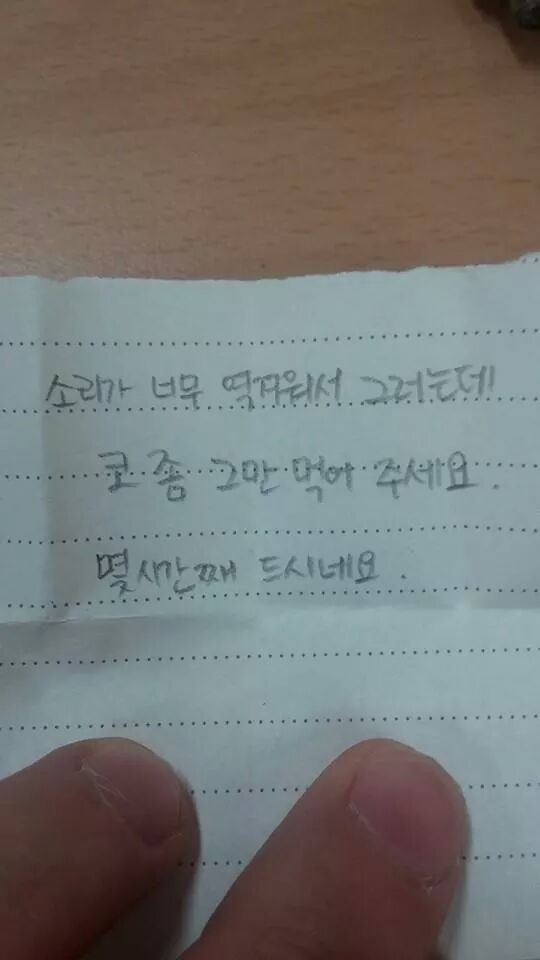 소리가 너무 역겨워서 그러는데
코 좀 그만 먹어 주세요.
몇시간째 드시네요.